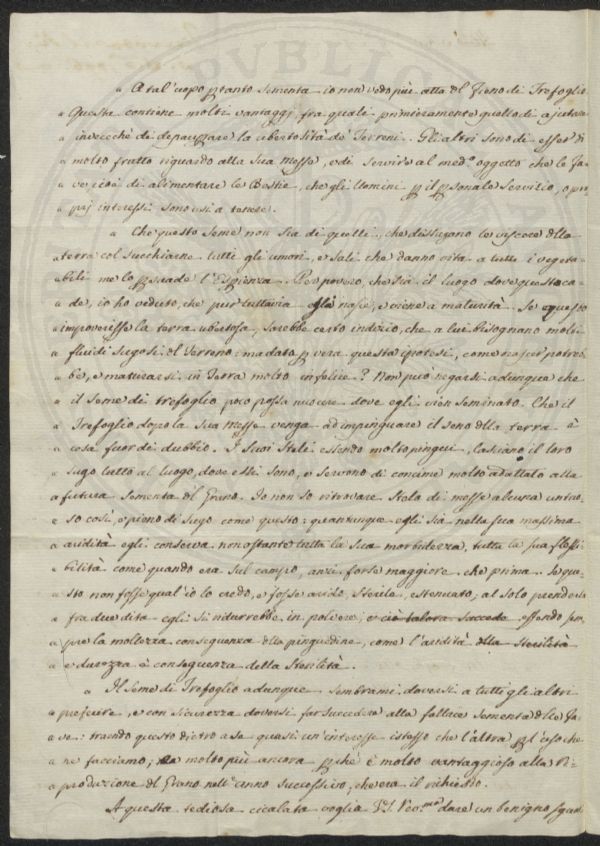 " A tal'uopo pertanto sementa io non vedo più atta del Fieno di Trefoglio
" Questa contiene molti vantaggj, fra quali primieramente quello di ajutare
" invecechè di depauperare la ubertosità de' Terreni. Gli altri sono di esser di
" molto frutto riguardo alla sua messe, e di servire al med.o oggetto che le Fa-
" ve cioè di alimentare le Bestie, che gli Uomini per il personale Servizio, o pro
" prj interessi sono usi a tenere.
" Che questo seme non sia di quelli, che dissugano le viscere della
" terra col succhiarne tutti gli umori, e sali che danno vita a tutti i vegeta-
" bili me lo persuade l'Esperienza. Per povero, che sia il luogo dove questo ca-
" de, io ho veduto, che pur tuttavia egli nasce, e viene a maturità. Se questo
" improverisse la terra ubertosa, sarebbe certo indizio, che a lui bisognano molti
" fluidi sugosi del Terreno: ma dato per vera questa ipotesi, come nascer potreb-
" be, e maturarsi in Terra molto infelice? Non può negarsi adunque che
" il seme di trefoglio poco possa nuocere dove egli vien seminato. Che il
" Trefoglio dopo la sua messe venga ad impinguare il seno della terra è
" cosa fuor di dubbio. I suoi steli essendo molto pingui, lasciano il loro
" sugo tutto al luogo, dove essi sono, e servono di concime molto adattato alla
" futura sementa del Grano. Io non so ritrovare stela di messe alcuna untuo
" so così, e pieno di sugo come questo: quantunque egli sia nella sua massima
" aridità egli conserva non ostante tutta la sua morbidezza, tutta la sua flessi-
" bilità come quando era sul campo, anzi forse maggiore che prima. Se que-
" sto non fosse qual'io lo credo, e fosse arido, sterile, estenuato, al solo prenderlo
" fra due dita egli si ridurrebbe in polvere, e ciò talora succede essendo sem
" pre la mollezza conseguenza della pinguedine, come l'aridità della sterilità
" e durezza è conseguenza della sterilità.
" Il seme di Trefoglio adunque sembrami doversi a tutti gli altri
" preferire, e con sicurezza doversi far succedere alla fallace sementa delle Fa-
" ve: traendo questo dietro a se quasi un'interesse istesso che l'altra per l'uso che
" ne facciamo; molto più ancora perchè è molto vantaggioso alla Ri-
" produzione del Grano nell'anno successivo, che era il richiesto.
A questa tediosa cicalata voglia V.S. Ecc.ma dare un benigno sguar